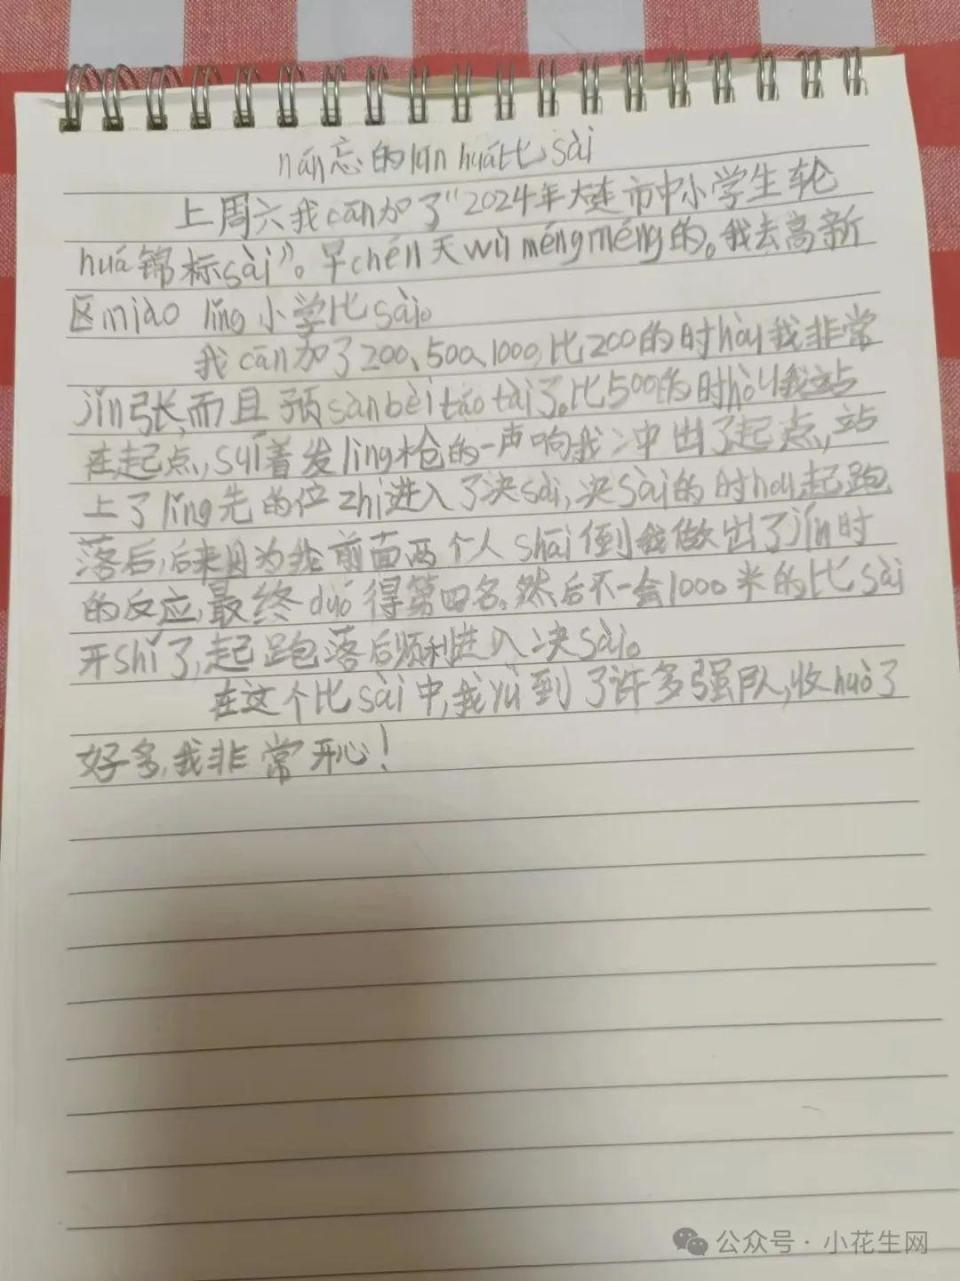 nán忘的lún huá比sài
上周六我cān加了“2024年大连市中小学生轮
huá锦标sài”。早chén天wù méngméng的。我去高新
区miào lǐng小学比sài。
我cān加了200、500、1000,比200的时hòu我非常
jǐn张,而且预sàn bèi táo tài了。比500的时hòu我站
在起点,suí着发lìng枪的一声响我冲出了起点,站
上了lǐng先的位zhì进入了决sài,决sài的时hou起跑
落后,后来因为我前面两个人shuāi倒我做出了jín时
的反应,最终duó得第四名。然后不一会1000米的比sài
开shǐ了,起跑落后顺利进入决sài。
在这个比sài中,我yù到了许多强队,收huò了
好多,我非常开心!
公众号·小花生网